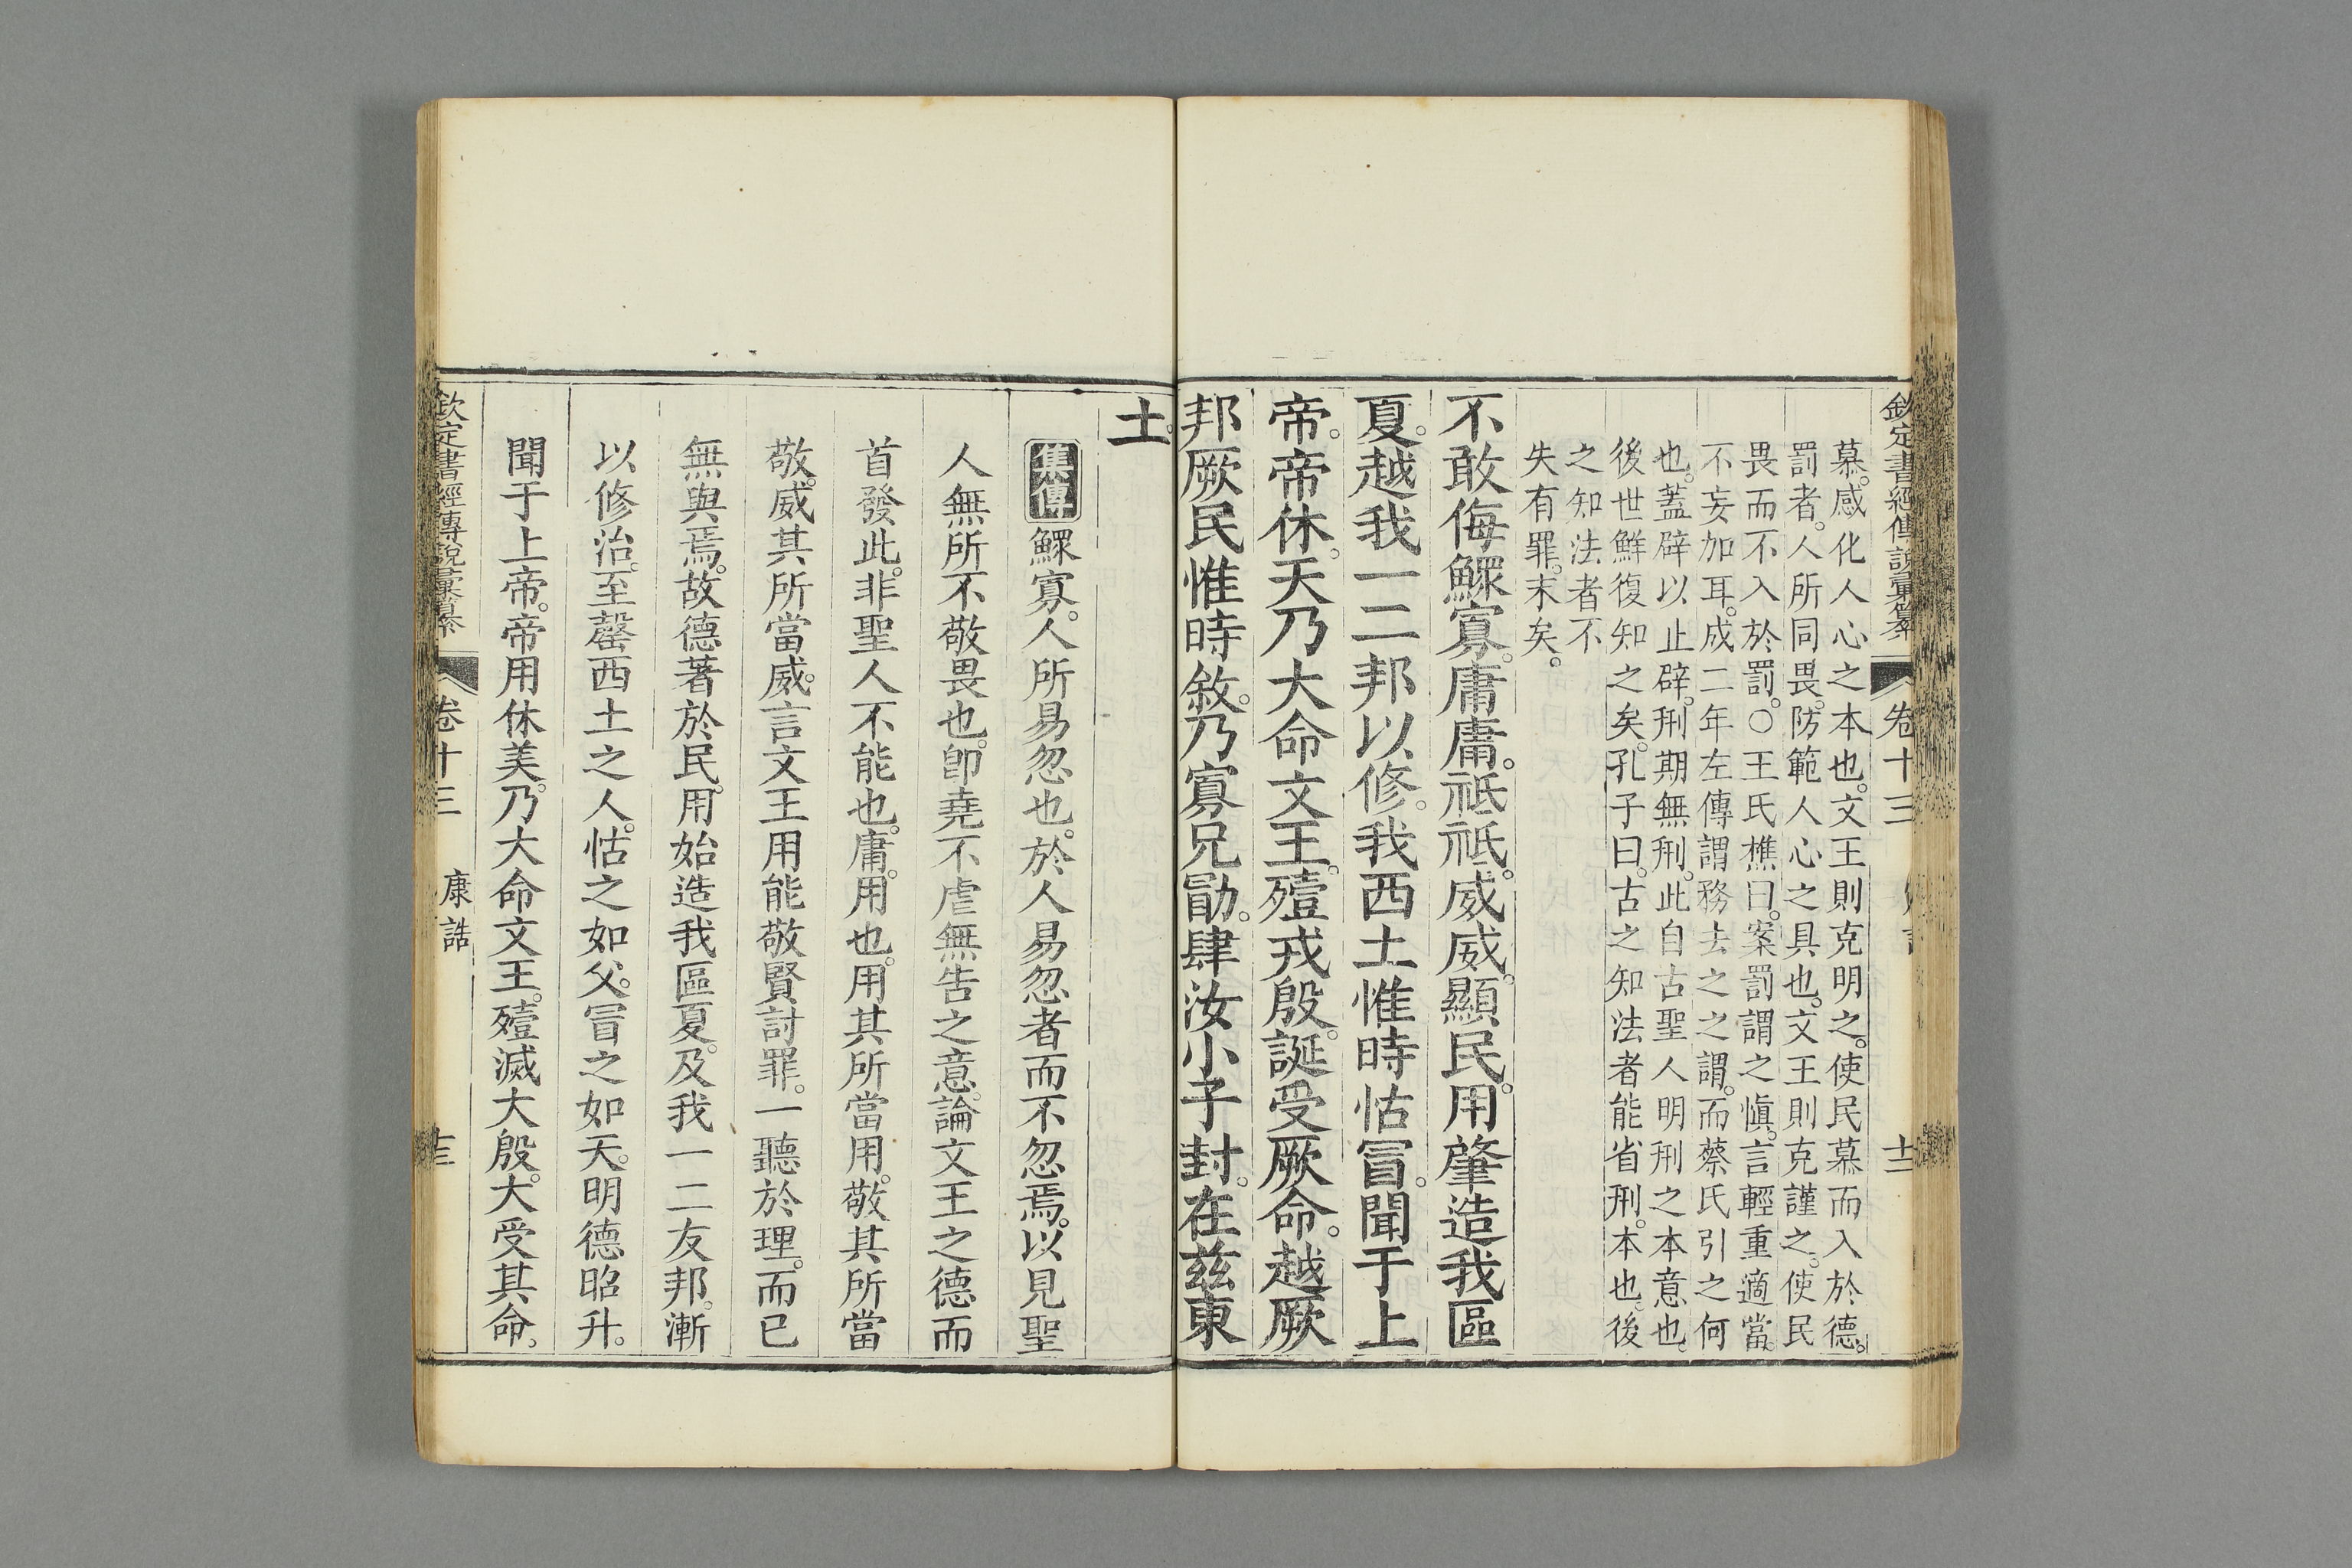 欽定書經傳說彙纂 卷十三
慕感化人心之本也。文王則克明之。使民慕而入於德。
罰者。人所同畏。防範人心之具也。文王則克謹之。使民
畏而不入於罰。○王氏樵曰。案罰謂之愼。言輕重適當。
不妄加耳。成二年左傳謂務去之之謂。而蔡氏引之何
也。蓋辟以止辟。刑期無刑。此自古聖人明刑之本意也。
後世鮮復知之矣。孔子曰。古之知法者能省刑。本也。後
之知法者不
失有罪。末矣。
不敢侮鰥寡。庸庸。祗祗。威威。顯民。用肇造我區
夏。越我一二邦以修。我西土惟時怙冒。聞于上
帝。帝休。天乃大命文王。殪戎殷。誕受厥命。越厥
邦厥民惟時敘。乃寡兄勖。肆汝小子封。在茲東
土。
集傳 鰥寡。人所易忽也。於人易忽者而不忽焉。以見聖
人無所不敬畏也。卽堯不虐無告之意。論文王之德而
首發此。非聖人不能也。庸。用也。用其所當用。敬其所當
敬。威其所當威。言文王用能敬賢討罪。一聽於理。而已
無與焉。故德著於民。用始造我區夏。及我一二友邦。漸
以修治。至罄西土之人。怙之如父。冒之如天。明德昭升。
聞于上帝。帝用休美。乃大命文王。殪滅大殷。大受其命。
欽定書經傳說彙纂 卷十三 康誥